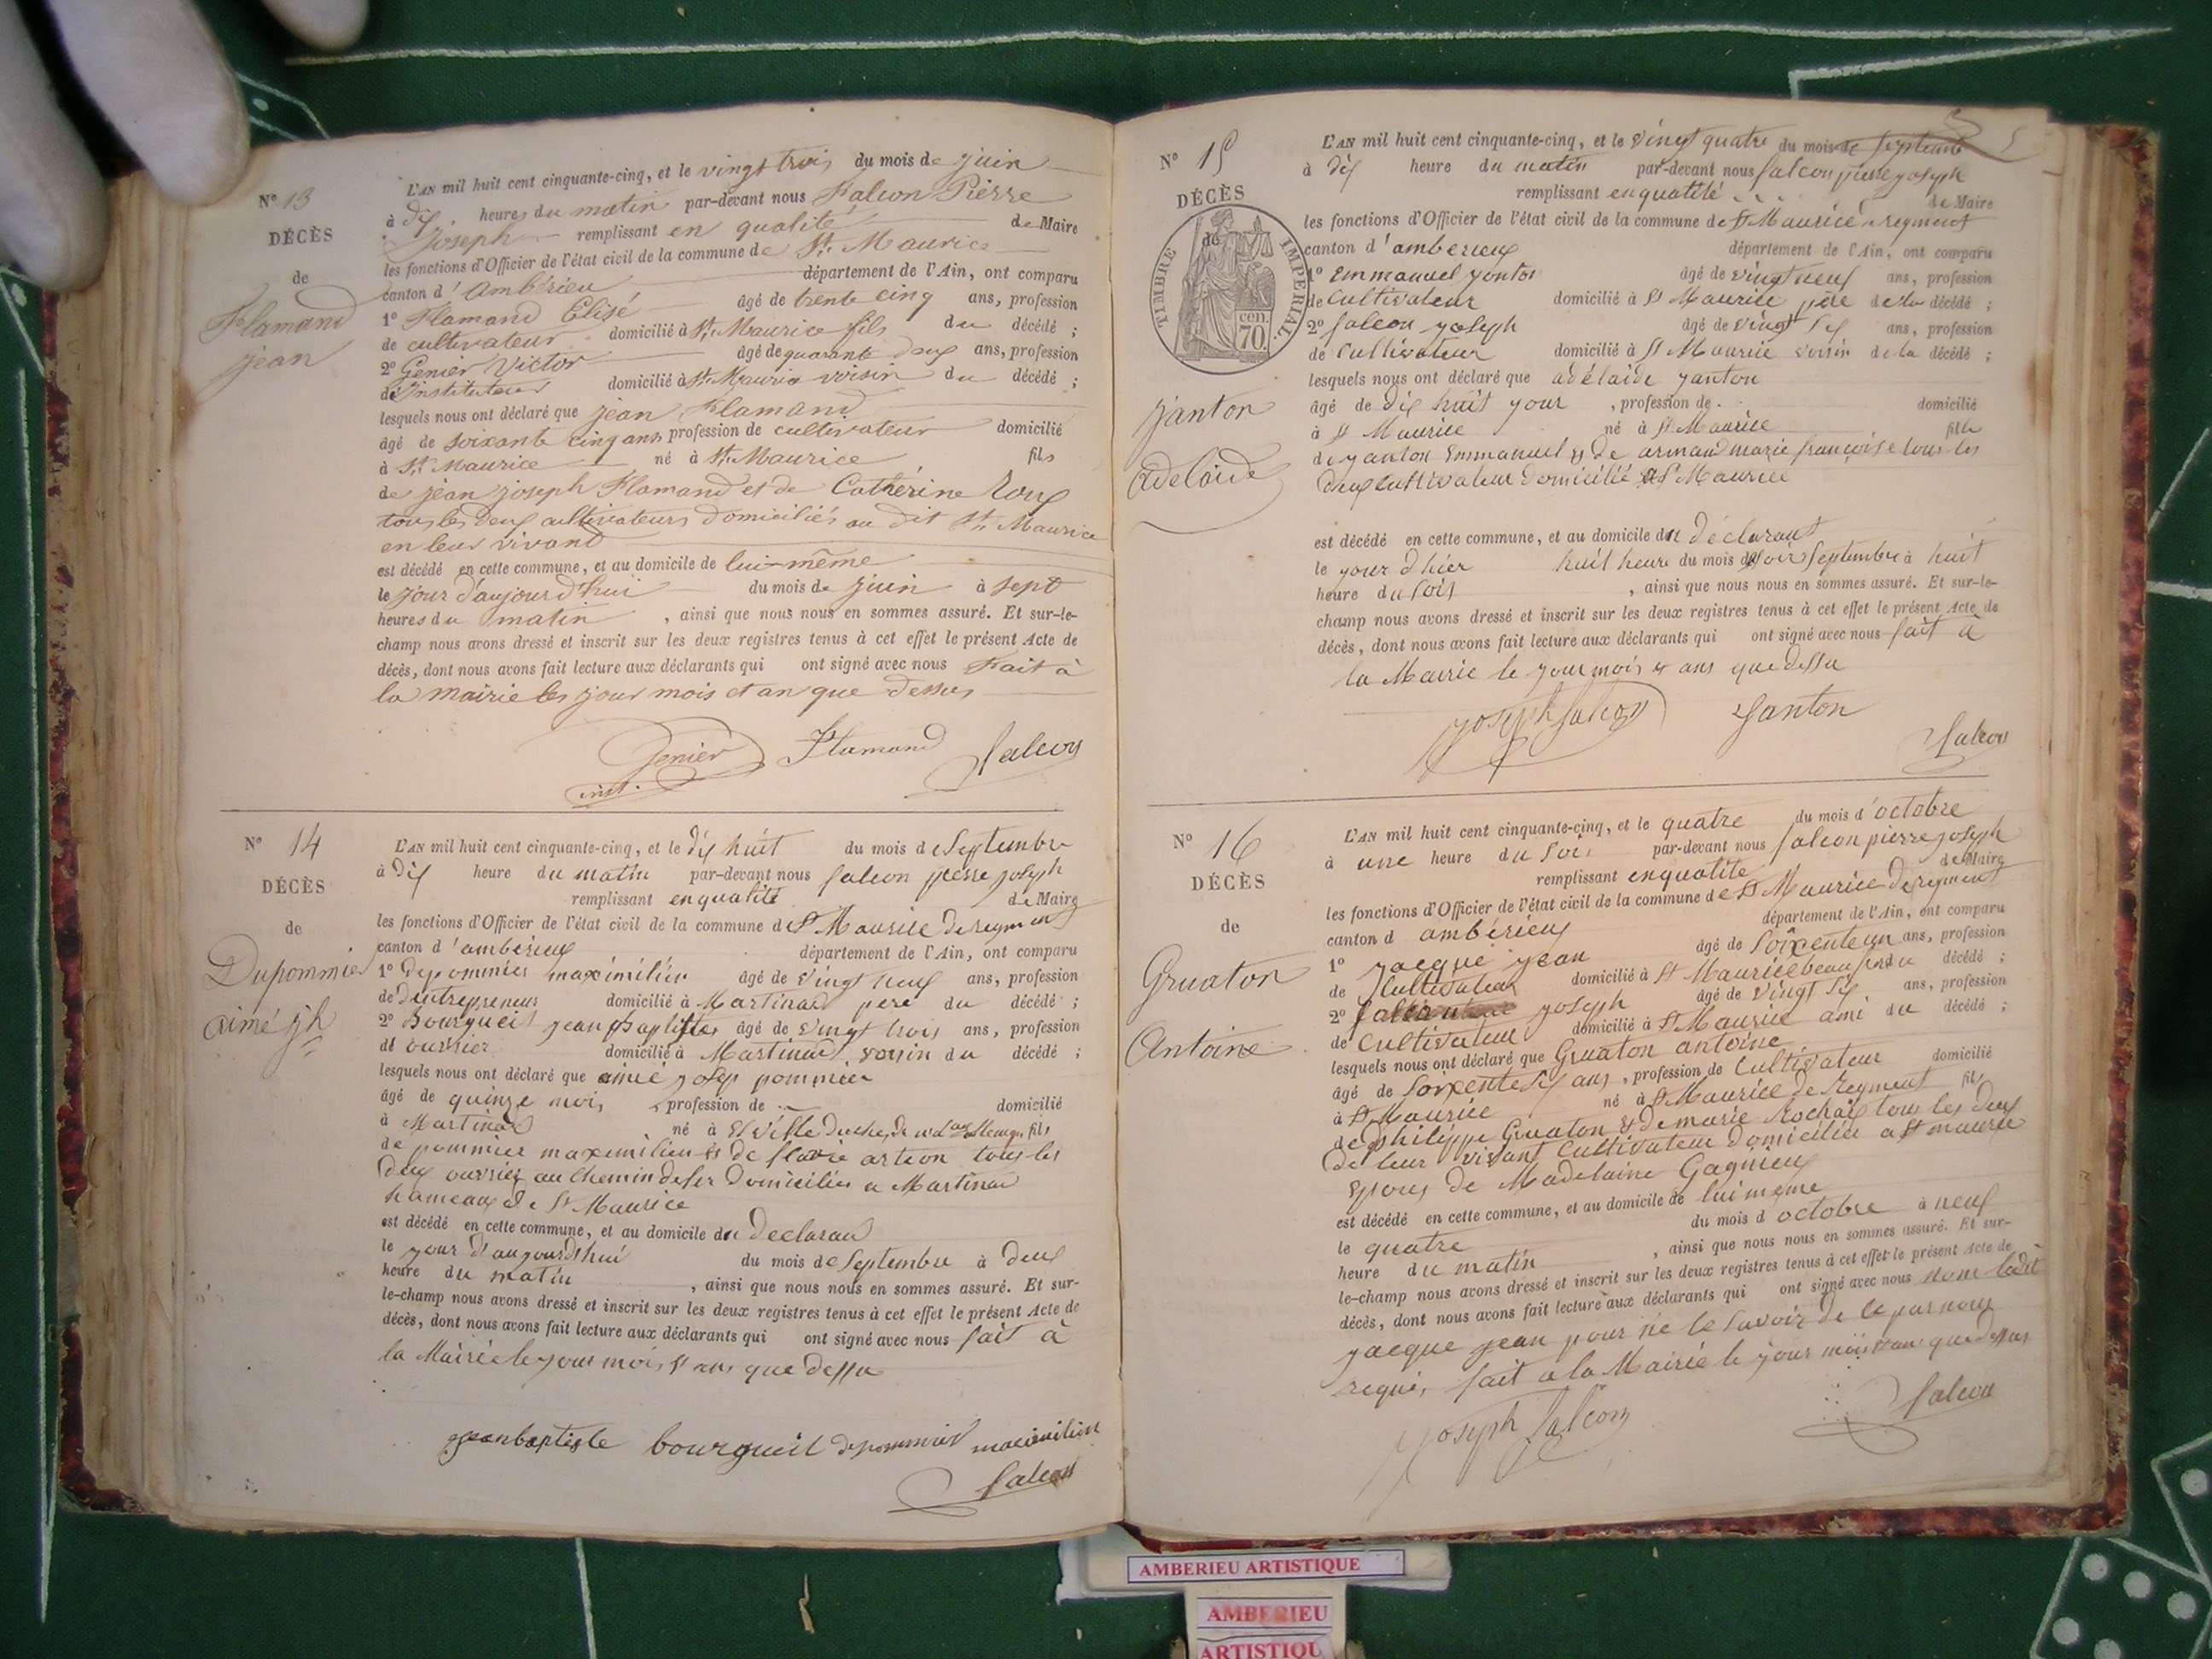 N° 13
DÉCÈS
de
Flamand
jean
L'AN mil huit cent cinquante-cinq, et le vingt trois du mois de juin
à dix heures du matin par-devant nous Falcon Pierre
Joseph remplissant en qualité de Maire
les fonctions d'Officier de l'état civil de la commune de St. Maurice
canton d'Ambérieu département de l'Ain, ont comparu
1° Flamand Elisé âgé de trente cinq ans, profession
de cultivateur domicilié à St. Maurice fils du décédé ;
2° Genier Victor âgé de quarante deux ans, profession
d'Instituteur domicilié à St. Maurice voisin du décédé ;
lesquels nous ont déclaré que jean Flamand
âgé de soixante cinq ans profession de cultivateur domicilié
à St. Maurice né à St. Maurice fils
de jean joseph Flamand et de Cathérine Roux
tous les deux cultivateurs domiciliés au dit St. Maurice
en leur vivant
est décédé en cette commune, et au domicile de lui-même
le jour d'aujourd'hui du mois de juin à sept
heures du matin , ainsi que nous nous en sommes assuré. Et sur-le-
champ nous avons dressé et inscrit sur les deux registres tenus à cet effet le présent Acte de
décès, dont nous avons fait lecture aux déclarants qui ont signé avec nous Fait à
la mairie les jour mois et an que dessus
Genier Flamand falcon
inst.
N° 14
DÉCÈS
de
Dupommier
aimé jh
L'AN mil huit cent cinquante-cinq, et le dix huit du mois de Septembre
à dix heure du matin par-devant nous falcon pierre joseph
remplissant en qualité de Maire
les fonctions d'Officier de l'état civil de la commune de St Maurice de reymens
canton d'ambérieux département de l'Ain, ont comparu
1° depommier maximilien âgé de vingt neuf ans, profession
de d'entrepreneur domicilié à Martinaz pere du décédé ;
2° Bourgueil jean Baptiste âgé de vingt trois ans, profession
de ouvrier domicilié à Martinaz voisin du décédé ;
lesquels nous ont déclaré que aimé josep pommier
âgé de quinze mois profession de domicilié
à Martinaz né à fils
de pommier maximilien & de arteon tous les
deux ouvrier au chemin de fer domicilier a Martinaz
hameaux de St Maurice
est décédé en cette commune, et au domicile du declaran
le jour d'aujourd'hui du mois de Septembre à deux
heure du matin , ainsi que nous nous en sommes assuré. Et sur-
le-champ nous avons dressé et inscrit sur les deux registres tenus à cet effet le présent Acte de
décès, dont nous avons fait lecture aux déclarants qui ont signé avec nous fait à
la Mairie le jour mois & ans que dessu
jeanbaptiste bourgueil depommier maximilien
falcon
N° 15
DÉCÈS
de
TIMBRE IMPERIAL.
cen
70.
janton
adelaide
L'AN mil huit cent cinquante-cinq, et le vingt quatre du mois de septembre
à dix heure du matin par-devant nous falcon pierre joseph
remplissant en qualité de Maire
les fonctions d'Officier de l'état civil de la commune de St Maurice reymens
canton d'amberieux département de l'Ain, ont comparu
1° Emmanuel janton âgé de vingt neuf ans, profession
de Cultivateur domicilié à St Maurice père de la décédé ;
2° falcon joseph âgé de vingt six ans, profession
de Cultivateur domicilié à St Maurice voisin de la décédé ;
lesquels nous ont déclaré que adélaïde janton
âgé de dix huit jour , profession de domicilié
à St Maurice né à St Maurice fille
de janton Emmanuel & de armand marie françoise tous les
deux cultivateur domicilié a St Maurice
est décédé en cette commune, et au domicile du déclarant
le jour d'hier huit heure du mois du soir septembre à huit
heure du soir , ainsi que nous nous en sommes assuré. Et sur-le-
champ nous avons dressé et inscrit sur les deux registres tenus à cet effet le présent Acte de
décès, dont nous avons fait lecture aux déclarants qui ont signé avec nous fait à
la Mairie le jour mois & ans que dessu
joseph falcon Janton
falcon
N° 16
DÉCÈS
de
Gruaton
Antoine
L'AN mil huit cent cinquante-cinq, et le quatre du mois d'octobre
à une heure du soir par-devant nous falcon pierre joseph
remplissant en qualité de Maire
les fonctions d'Officier de l'état civil de la commune de St Maurice de reymens
canton d ambérieux département de l'Ain, ont comparu
1° jacque jean âgé de soixente un ans, profession
de Cultivateur domicilié à St Maurice beau du décédé ;
2° joseph âgé de vingt six ans, profession
de cultivateur domicilié à St Maurice ami du décédé ;
lesquels nous ont déclaré que Gruaton antoine
âgé de soixente six ans , profession de Cultivateur domicilié
à St Maurice né à St Maurice de Reymens fils
de philippe Gruaton & de marie Rochaix tous les deux
de leur vivant Cultivateur domicilier a St maurice
Epoux de Madelaine Gagnieux
est décédé en cette commune, et au domicile de lui même
le quatre du mois d octobre à neuf
heure du matin , ainsi que nous nous en sommes assuré. Et sur-
le-champ nous avons dressé et inscrit sur les deux registres tenus à cet effet le présent Acte de
décès, dont nous avons fait lecture aux déclarants qui ont signé avec nous non ledit
jacque jean pour ne le savoir de ce par nous
requi, fait a la Mairie le jour mois & an que dessus
Joseph falcon falcon
AMBERIEU ARTISTIQUE
AMBERIEU
ARTISTIQU